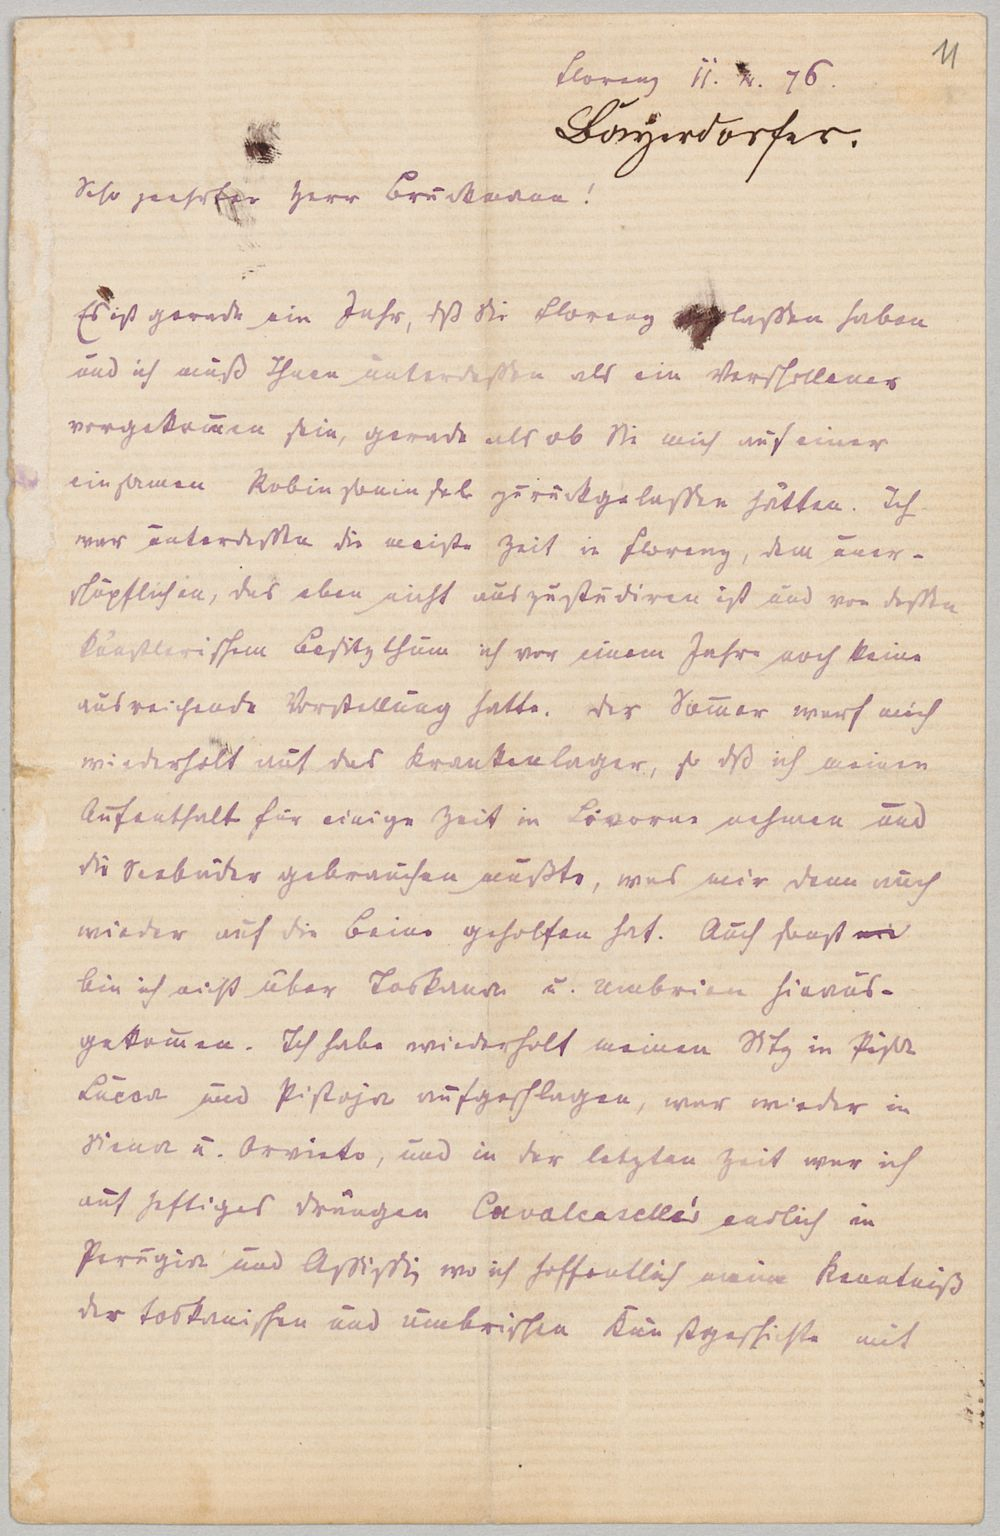 11
Florenz 11. 76.
Bayersdorfer.
Sehr geehrter Herr Bruckmann!
Es ist gerade ein Jahr, dß Sie Florenz verlassen haben
und ich muß Ihnen unterdessen als ein Verschollener
vorgekom̄en sein, gerade als ob Sie mich auf einer
einsamen Robinsoninsel zurückgelassen hätten. Ich
war unterdessen die meiste Zeit in Florenz, dem uner-
schöpflichen, das eben nicht auszustudiren ist und von dessen
künstlerischem Besitzthum ich vor einem Jahre noch keine
ausreichende Vorstellung hatte. Der Som̄er warf mich
wiederholt auf das Krankenlager, so dß ich meinen
Aufenthalt für einige Zeit in Livorno nehmen und
die Seebäder gebrauchen mußte, was mir denn auch
wieder auf die Beine geholfen hat. Auch sonst
bin ich nicht über Toskana u. Umbrien hinaus-
gekom̄en. Ich habe wiederholt meinen Sitz in Pisa
Lucca und Pistoja aufgeschlagen, war wieder in
Siena u. Orvieto, und in der letzten Zeit war ich
auf heftiges Drängen Cavalcaselle's endlich in
Perugia und Assissi, wo ich hoffentlich meine Kenntniß
der toskanischen und umbrischen Kunstgeschichte mit